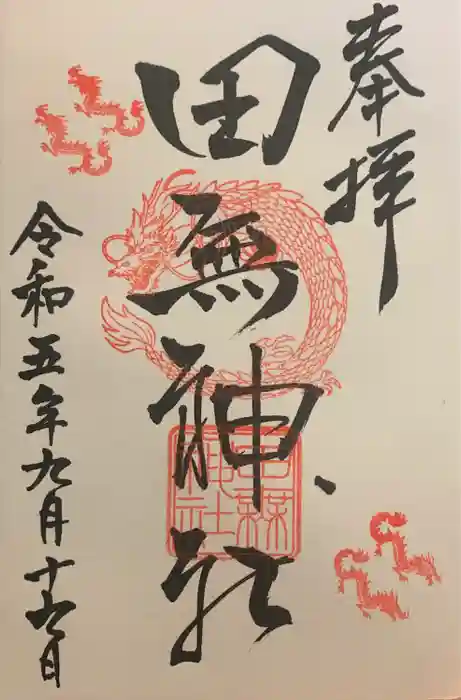 奉拝
田無神社
田無
神社
令和五年九月十六日